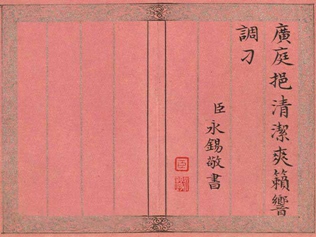 廣庭挹清潔爽籟響
調刁
臣永錫敬書